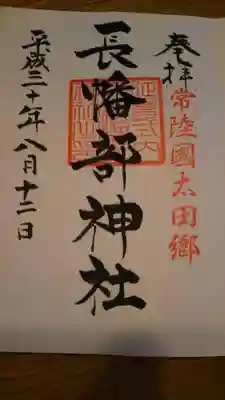 奉拝
常陸國太田郷
長幡部神社
平成三十年八月十二日